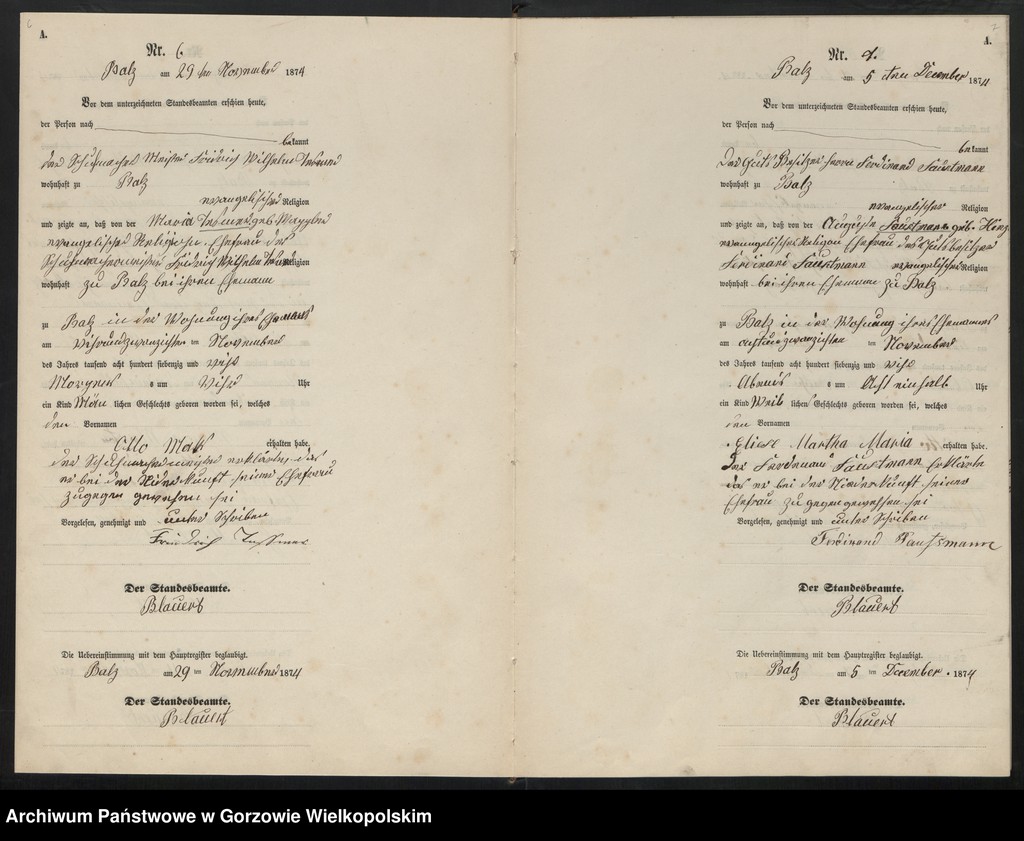 6
A.
Nr. 6
Balz am 29 ten November 1874
Vor dem unterzeichneten Standesbeamten erschien heute,
der Person nach
bekannt
der Schuhmacher Meister Fridrich Wilhelm
wohnhaft zu Balz
evangelischer Religion
und zeigte an, daß von der Maria geb.
evangelischer Religion Ehefrau des
Schuhmachermeister Fridrich Wilhelm Religion
wohnhaft zu Balz bei ihren Ehemann
zu Balz in der Wohnung ihres Ehemanns
am ten November
des Jahres tausend acht hundert siebenzig und vier
Morgens um Uhr
ein Kind Män lichen Geschlechts geboren worden sei, welches
den Vornamen
Otto Max erhalten habe.
der Schuhmachermeister erklärte das
er bei der Niederkunft seiner Ehefrau
zugegen gewesen sei
Vorgelesen, genehmigt und unter Schriben
Friedrich
Der Standesbeamte.
Blauert
Die Uebereinstimmung mit dem Hauptregister beglaubigt.
Balz am 29 ten November 1874
Der Standesbeamte.
Blauert
7
A.
Nr.
Balz am 5 ten December 1874
Vor dem unterzeichneten Standesbeamten erschien heute,
der Person nach
bekannt
Der Guts Besitzer Ferdinand Faustmann
wohnhaft zu Balz
evangelischer Religion
und zeigte an, daß von der Auguste Faustmann geb.
evangelischer Religion Ehefrau des Gutsbesitzer
Ferdinand Faustmann evangelischer Religion
wohnhaft bei ihren Ehemann zu Balz
zu Balz in der Wohnung ihres Ehemannes
am achtundzwanzigsten ten November
des Jahres tausend acht hundert siebenzig und vier
Abends um Acht ein halb Uhr
ein Kind Weib lichen Geschlechts geboren worden sei, welches
den Vornamen
Eliese Martha Maria erhalten habe.
Der Ferdinand Faustmann Erklärte
das er bei der Niederkunft seiner
Ehefrau zu gegen gewessen sei
Vorgelesen, genehmigt und unter Schriben
Ferdinand Faustmann
Der Standesbeamte.
Blauert
Die Uebereinstimmung mit dem Hauptregister beglaubigt.
Balz am 5 ten December 1874
Der Standesbeamte.
Blauert
Archiwum Państwowe w Gorzowie Wielkopolskim